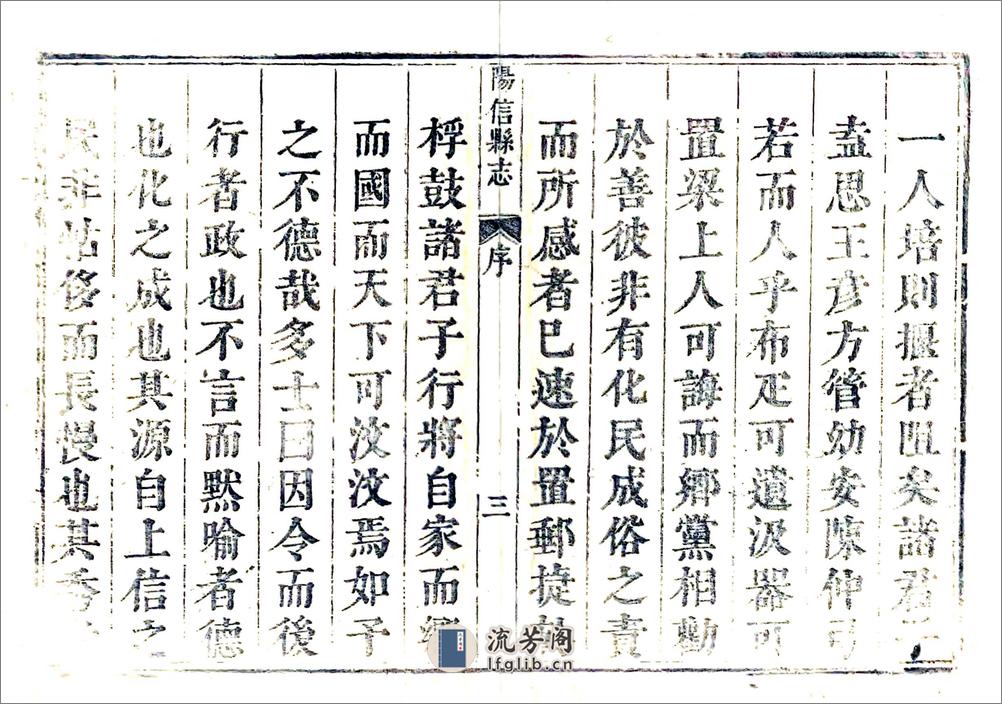 一人培則握者阻矣諸君子
盍思王彥方管幼安陳仲弓
若而人乎布疋可遺汲器可
置梁上人可誨而鄉黨相勸
於善彼非有化民成俗之責
而所感者已速於置郵捷於
陽信縣志 序 三
桴鼓諸君子行將自家而鄉
而國而天下可汶汶焉如予
之不德哉多士曰因令而後
行者政也不言而默喻者德
也化之成也其源自上信之
民非怙侈而長慢也其秀
流芳阁
lfglib.cn